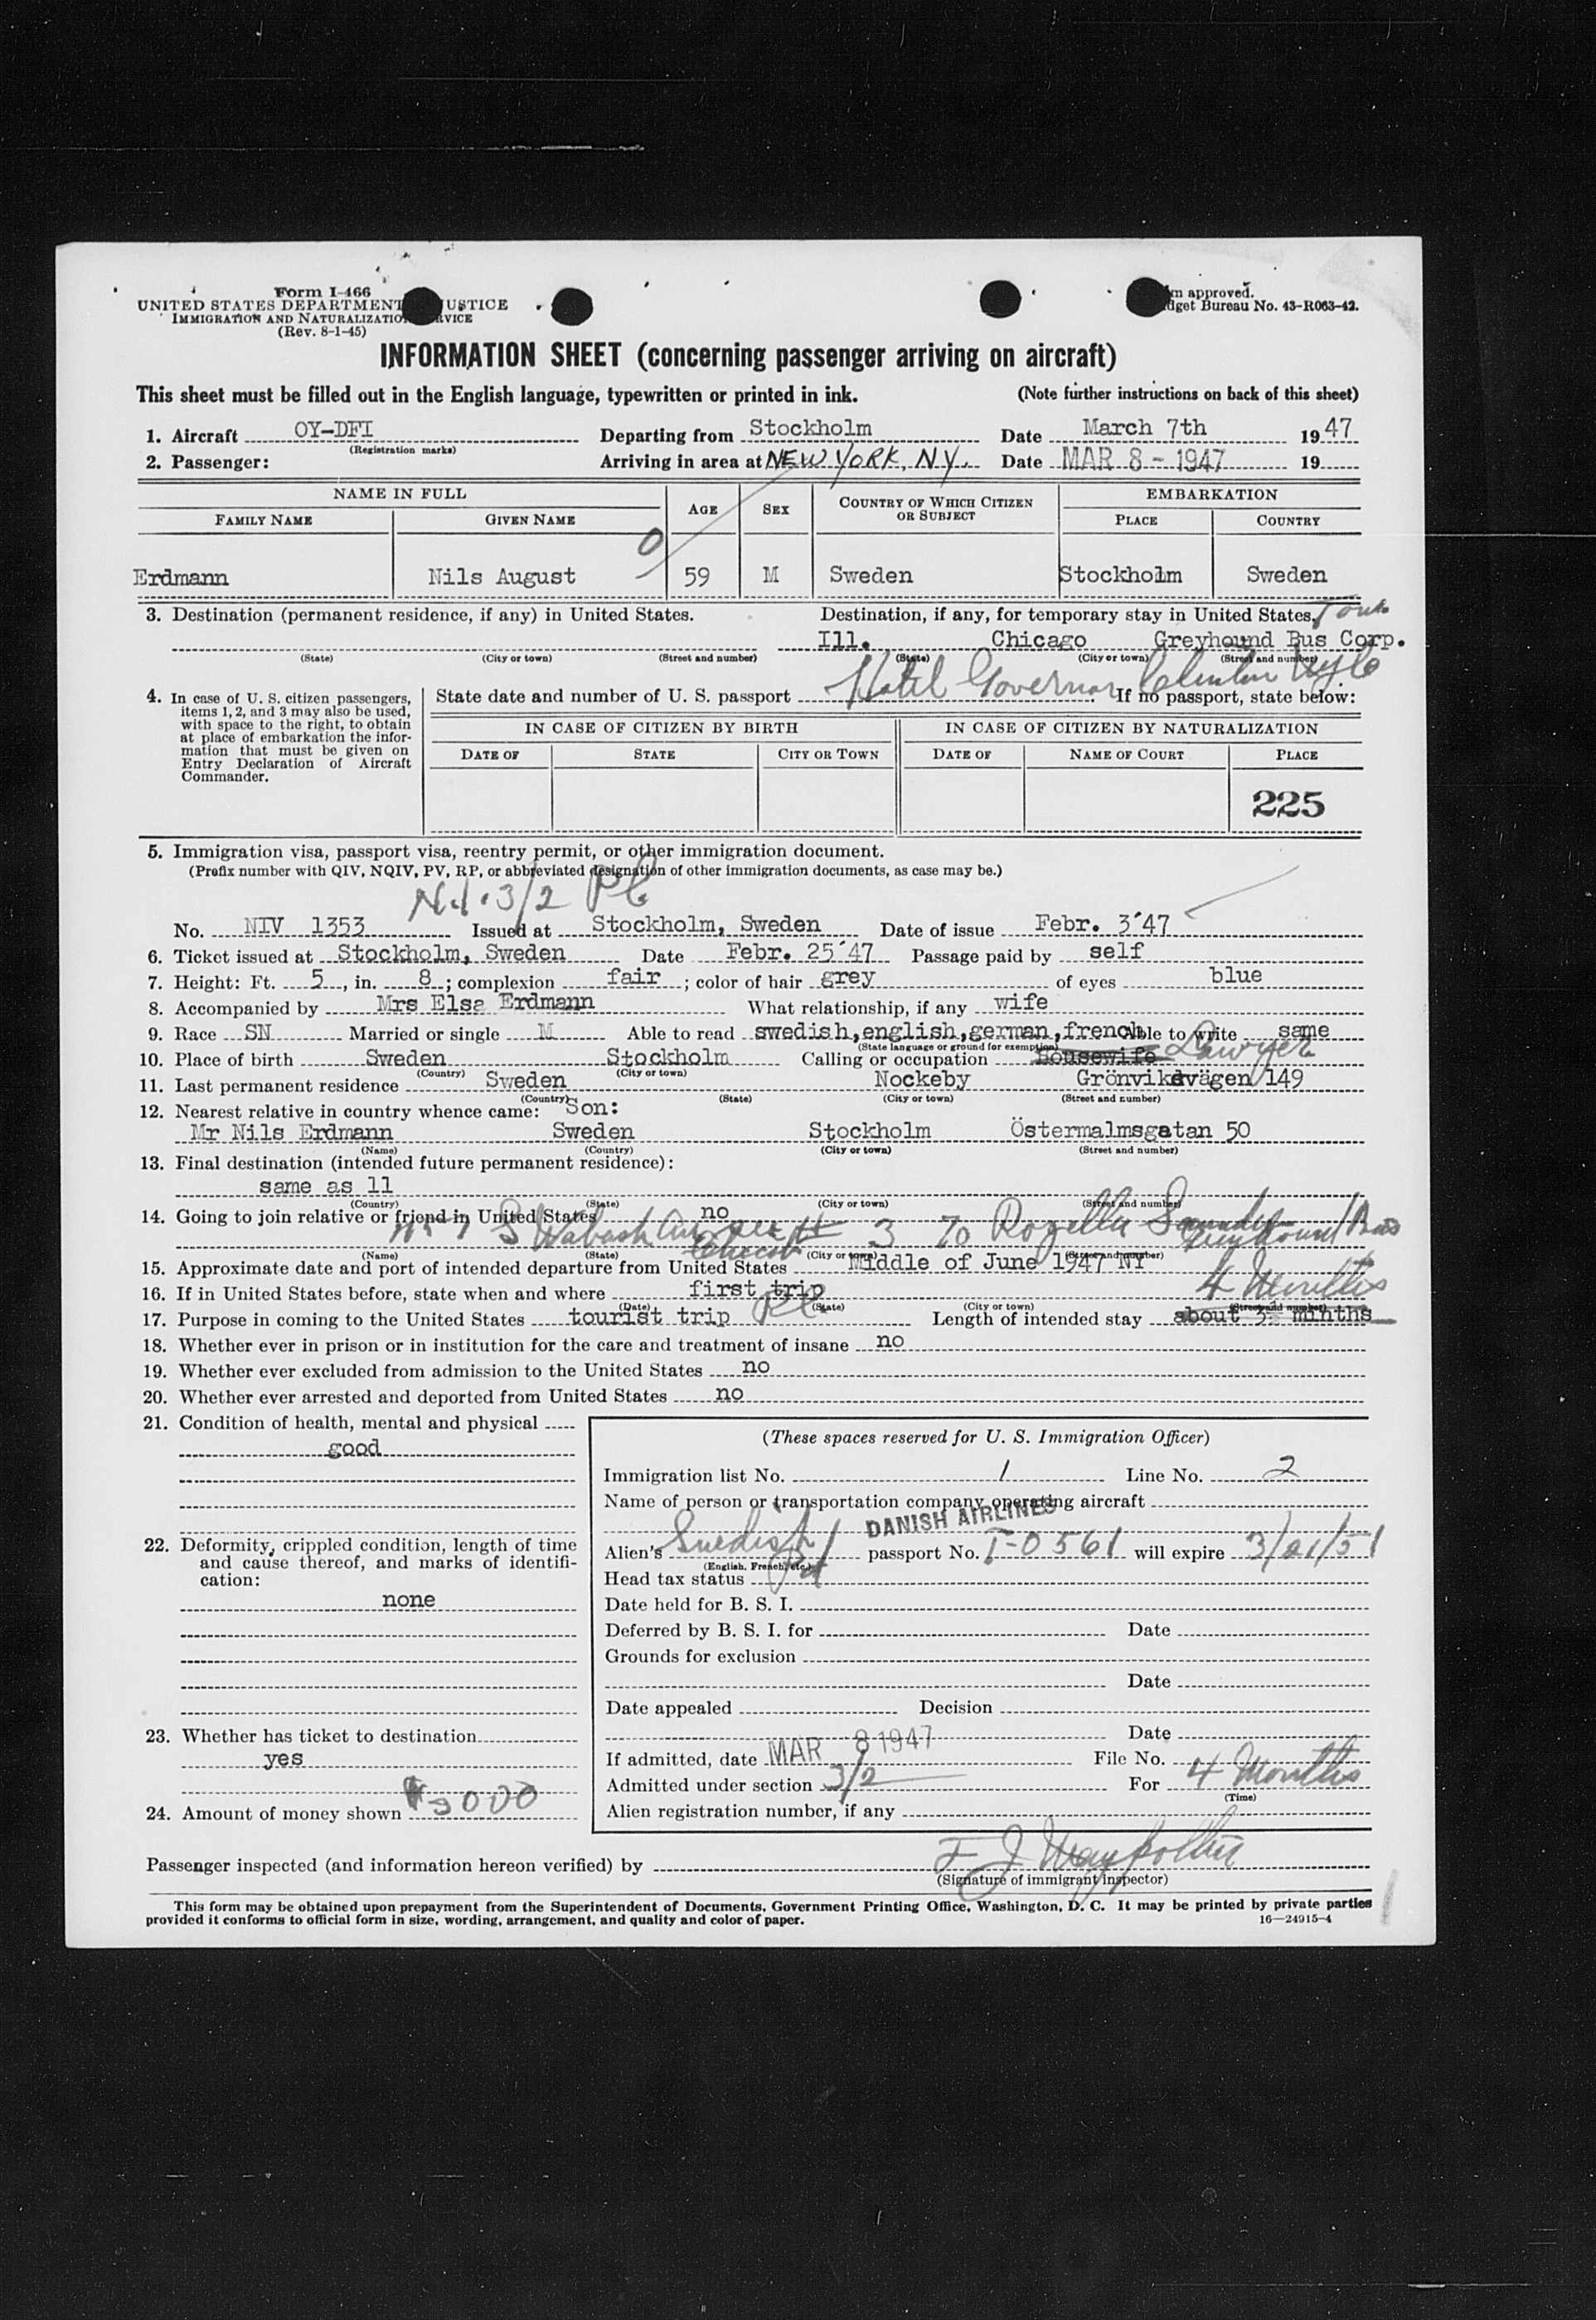 Form I-466
UNITED STATES DEPARTMENT USTICE
IMMIGRATION AND NATURALIZATIO RVICE
(Rev. 8-1-45)
m approved.
dget Bureau No. 43-R063-42.
INFORMATION SHEET (concerning passenger arriving on aircraft)
This sheet must be filled out in the English language, typewritten or printed in ink. (Note further instructions on back of this sheet)
1. Aircraft OY-DFI Departing from Stockholm Date March 7th 1947
(Registration marks)
2. Passenger: Arriving in area at NEW YORK, NY. Date MAR 8 - 1947 19
NAME IN FULL AGE SEX COUNTRY OF WHICH CITIZEN OR SUBJECT EMBARKATION
FAMILY NAME GIVEN NAME PLACE COUNTRY
Erdmann Nils August 59 M Sweden Stockholm Sweden
3. Destination (permanent residence, if any) in United States. Destination, if any, for temporary stay in United States.
Ill. Chicago Greyhound Bus Corp.
(State) (City or town) (Street and number) (State) (City or town) (Street and number)
Hotel Governor Clinton NYC
4. In case of U. S. citizen passengers, items 1, 2, and 3 may also be used, with space to the right, to obtain at place of embarkation the information that must be given on Entry Declaration of Aircraft Commander.
State date and number of U. S. passport If no passport, state below:
IN CASE OF CITIZEN BY BIRTH IN CASE OF CITIZEN BY NATURALIZATION
DATE OF STATE CITY OR TOWN DATE OF NAME OF COURT PLACE
225
5. Immigration visa, passport visa, reentry permit, or other immigration document.
(Prefix number with QIV, NQIV, PV, RP, or abbreviated designation of other immigration documents, as case may be.)
3/2
No. NIV 1353 Issued at Stockholm, Sweden Date of issue Febr. 3´47
6. Ticket issued at Stockholm, Sweden Date Febr. 25´47 Passage paid by self
7. Height: Ft. 5, in. 8; complexion fair; color of hair grey of eyes blue
8. Accompanied by Mrs Elsa Erdmann What relationship, if any wife
9. Race SN Married or single M Able to read swedish,english,german,french Able to write same
(State language or ground for exemption)
10. Place of birth Sweden Stockholm Calling or occupation Housewife Lawyer
(Country) (City or town)
11. Last permanent residence Sweden Nockeby Grönviksvägen 149
(Country) (State) (City or town) (Street and number)
12. Nearest relative in country whence came: Son:
Mr Nils Erdmann Sweden Stockholm Östermalmsgatan 50
(Name) (Country) (City or town) (Street and number)
13. Final destination (intended future permanent residence):
same as 11
(Country) (State) (City or town) (Street and number)
14. Going to join relative or friend in United States no
S Wabash 3 To Rozella Greyhound Bus
(Name) (State) (City or town) (Street and number)
15. Approximate date and port of intended departure from United States Middle of June 1947 NY
16. If in United States before, state when and where first trip 4 Months
(Date) (State) (City or town) (Street and number)
17. Purpose in coming to the United States tourist trip Length of intended stay about 3 minths
18. Whether ever in prison or in institution for the care and treatment of insane no
19. Whether ever excluded from admission to the United States no
20. Whether ever arrested and deported from United States no
21. Condition of health, mental and physical
good
22. Deformity, crippled condition, length of time and cause thereof, and marks of identification:
none
23. Whether has ticket to destination
yes
24. Amount of money shown
(These spaces reserved for U. S. Immigration Officer)
Immigration list No. 1 Line No. 2
Name of person or transportation company operating aircraft
DANISH AIRLINES
Alien's Swedish passport No. I-0561 will expire 3/21/51
(English, French, etc.)
Head tax status
Date held for B. S. I.
Deferred by B. S. I. for Date
Grounds for exclusion
Date
Date appealed Decision
Date
If admitted, date MAR 8 1947 File No.
Admitted under section 3/2 For 4 Months
(Time)
Alien registration number, if any
Passenger inspected (and information hereon verified) by
(Signature of immigrant inspector)
This form may be obtained upon prepayment from the Superintendent of Documents, Government Printing Office, Washington, D. C. It may be printed by private parties
provided it conforms to official form in size, wording, arrangement, and quality and color of paper. 16—24915-4